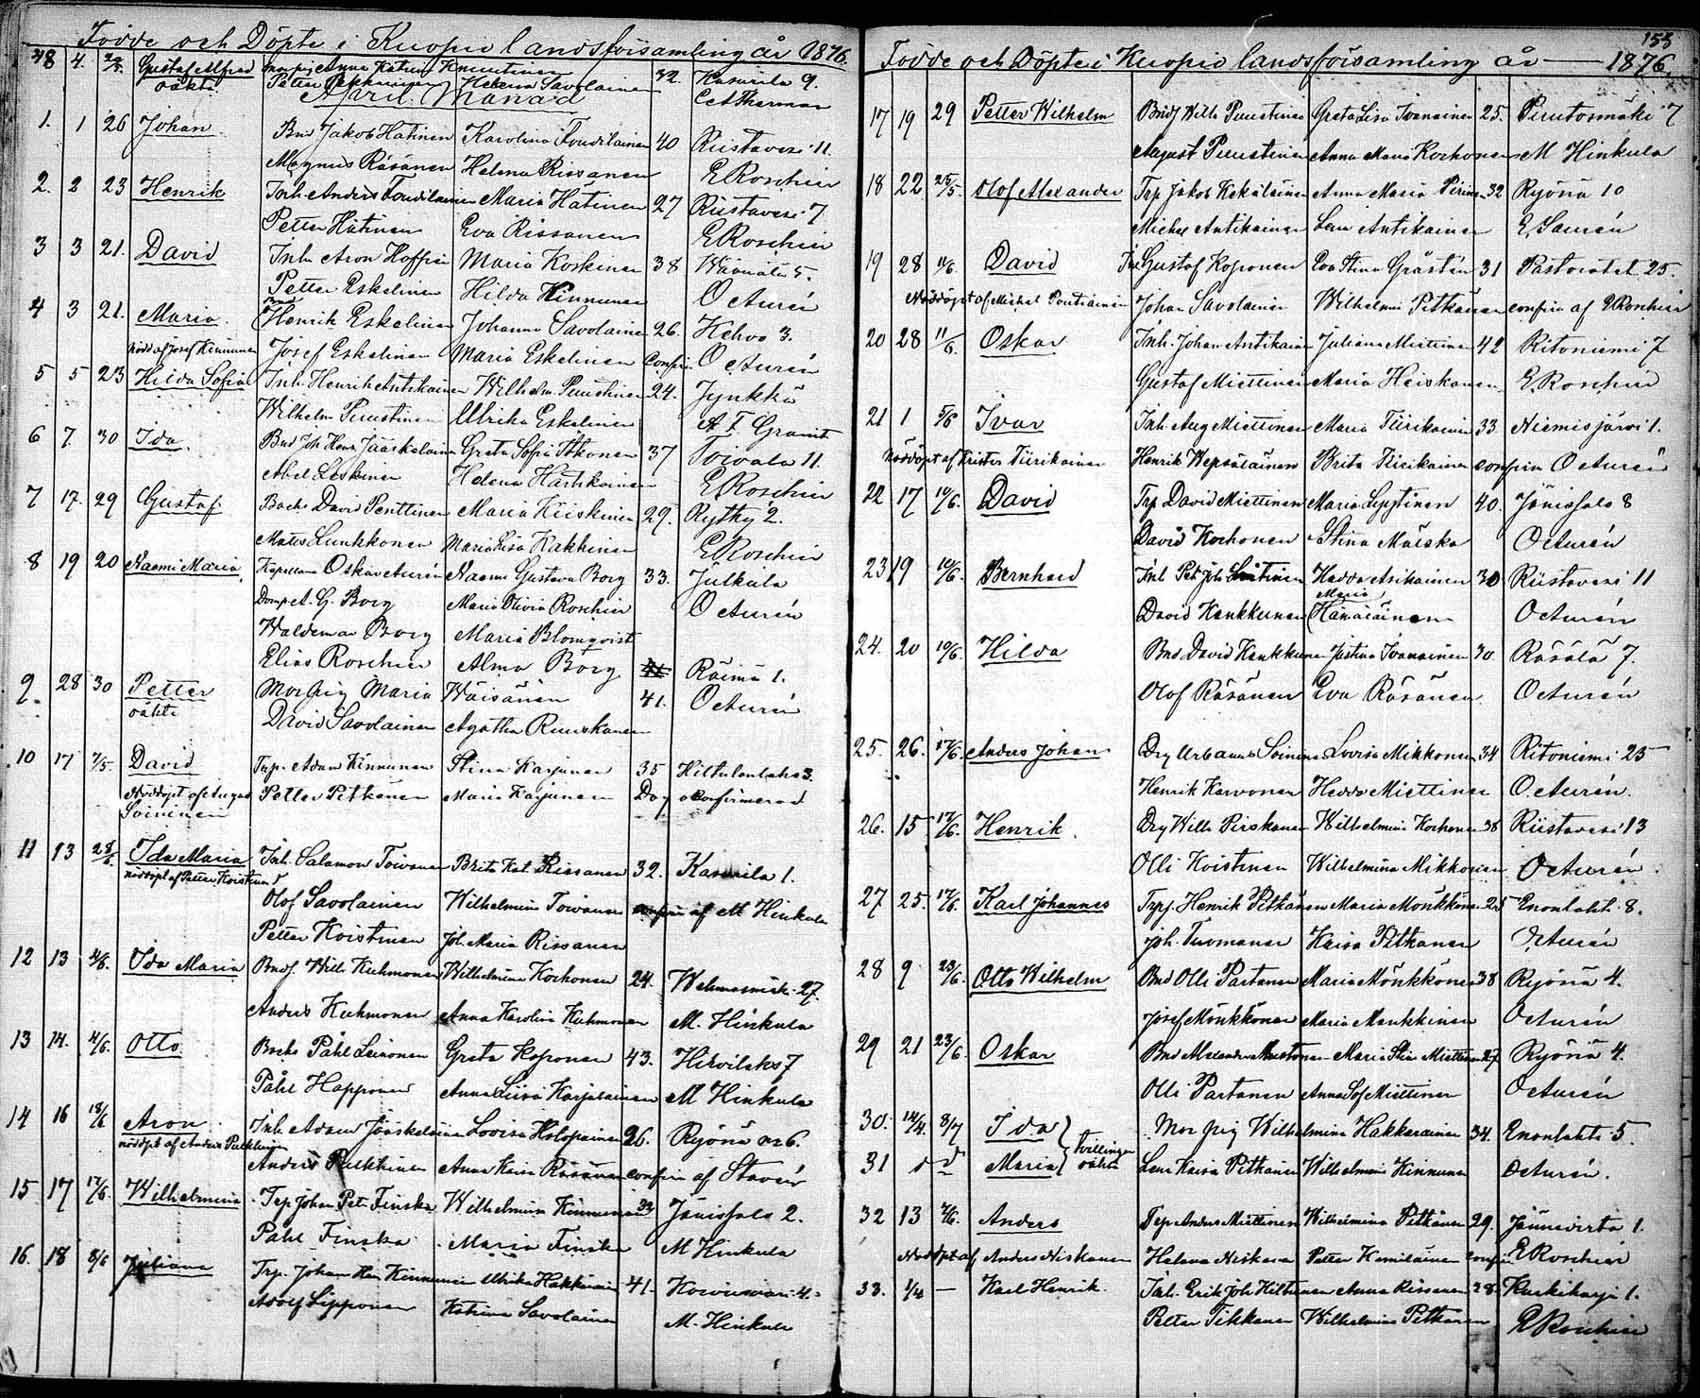 Födde och Döpte i Kuopio landsförsamling år 1876.
48 4. Gustaf Alfred Mospig Anna Katrin Knuutinen 32. Kasurila 9.
oäkta Petter Pekkarinen Helena Savolainen C A Therman
April Månad
1. 1 26 Johan Bnd Jakob Hätinen Karolina Toudilainen 40 Riistavesi 11.
Magnus Räsänen Helena Rissanen E Roschier
2. 2 23 Henrik Inh. Anders Toudilainen Maria Hätinen 27 Riistavesi 7
Petter Hätinen Eva Rissanen E Roschier
3 3 21. David Inh Aron Hoffrén Maria Koskinen 38 5.
Petter Eskelinen Hilda Kinnunen O Aurén
4 3 21. Maria Henrik Eskelinen Johanna Savolainen 26. Kehvo 3.
nödd af Josef Kinnunen Josef Eskelinen Maria Eskelinen Confir. O Aurén
5 5 23 Hilda Sofia Inh. Henrik Antikainen Wilhelm. Puustinen 24. Jynkkä
Wilhelm Puustinen Ulrika Eskelinen A. F. Granit
6 7. 30 Ida. Bnd Joh Henr Jääskeläinen Greta Sofia Itkonen 37 Toivala 11.
Abel Leskinen Helena E Roschier
7 17. 29 Gustaf Backs David Penttinen Maria Kiiskinen 29. Rytky 2.
Matts Lunkkonen Maria Lisa Kakkinen E Roschier
8 19 20 Naemi Maria Kapellan Oskar Aurén Naemi Gustava Borg 33. Julkula
A. G. Borg Maria Olivia Roschier O Aurén
Waldemar Borg Maria Blomqvist
Elias Roschier Alma Borg Räimä 1.
9. 28 30 Petter Mospig Maria Wäisänen 41. O Aurén
oäkta David Savolainen Agatha Ruuskanen
10 17 7/5 David Trp. Adam Kinnunen Stina Karjunen 35 Hiltulanlaks 3.
Nöddöpt af August Petter Pitkänen Maria Karjunen Dog okonfirmerad
Soininen
11 13 28/5. Ida Maria Inh. Salamon Toivanen Brita Kat. Rissanen 32. Kasurila 1.
nöddöpt af Petter Koistinen
Olof Savolainen Wilhelmina Toivanen confir. af M Hinkula
Petter Koistinen Joh. Maria Rissanen
12 13 4/6. Ida Maria Bndf. Wilh Kuhmonen Wilhelmina Korhonen 24. Wehmasmäki 27.
Anders Kuhmonen Anna Karolina Kuhmonen M. Hinkula
13 14. 4/6. Otto Backs Påhl Leinonen Greta Koponen 43. Hirvilaks 7
Påhl Happonen Anna Liisa Karjalainen M Hinkula
14 16 Aron Inh. Adam Jääskeläinen Lovisa Holopainen 26. Ryönä No 6.
nöddöpt af Anders Pulkkinen
Anders Pulkkinen Anna Kaisa Räsänen confir. af Stavén
15 17 Wilhelmina Trp Johan Petr Finska Wilhelmina Kinnunen 33 Jänissalo 2.
Påhl Finska Maria Finska M Hinkula
16. 18 8/6 Juliana Trp. Johan Hen Kinnunen Ulrika Hakkarainen 41. Koivusaari 4.
Adolf Lipponen Katrina Savolainen M. Hinkula
153
Födde och Döpte i Kuopio landsförsamling år — 1876.
17 19 29 Petter Wilhelm Bndf Wilh Puustinen Greta Lisa Ivanainen 25. Puutosmäki 7
August Puustinen Anna Maria Korhonen M Hinkula
18 22 25/5 Olof Alexander Trp Jakob Kekäläinen Anna Maria Pirinen 32 Ryönä 10
Michel Antikainen Lena Antikainen E. Saurén
19 28 11/6. David Gustaf Koponen Eva Stina Gråstén 31 Pastoratet 25.
Nöddöpt af Michel Pentikäinen Johan Savolainen Wilhelmi Pitkänen confir af E Roschier
20 28 11/6. Oskar Inh. Johan Antikainen Juliana Miettinen 42 Ritoniemi 7
Gustaf Miettinen Maria Heiskanen E. Roschier
21 1 5/6 Ivar Inh. Aug Miettinen Maria Tiirikainen 33 Niemisjärvi 1.
Nöddöpt af Krister Tiirikainen Henrik Wepsäläinen Brita Tiirikainen confir O Aurén
22 17 10/6. David Trp David Miettinen Maria Lyytinen 40. Jänissalo 8
David Korhonen Stina Maiska O Aurén
23 19 10/6. Bernhard Inh Pet Joh Hedda Asikainen 30 Riistavesi 11
David Kankkunen Maria Hämäläinen O Aurén
24. 20 10/6. Hilda Bnd David Kankkunen Justina Ivanainen 30 Räsälä 7.
Olof Räsänen Eva Räsänen O Aurén
25. 26. 17/6. Anders Johan Drg Urbanus Soininen Lovisa Mikkonen 34 Ritoniemi 25
Henrik Karvonen Hedda Miettinen O. Aurén.
26. 15 17/6. Henrik. Drg Wilh Pirskanen Wilhelmina Korhonen 38 Riistavesi 13
Olli Koistinen Wilhelmina Mikkonen O Aurén.
27 25. 17/6. Karl Johannes Trpf. Henrik Pitkänen Maria Mönkkönen 25 Enonlahti 8.
Joh. Tuomanen Kaisa Pitkänen O Aurén
28 9 23/6. Otto Wilhelm Bnd Olli Partanen Maria Mönkkönen 38 Ryönä 4.
Josef Mönkkönen Maria Mönkkönen O Aurén
29 21 23/6. Oskar Bnd Alexander Mustonen Maria Stin Miettinen 27 Ryönä 4.
Olli Partanen Anna Sof Miettinen O Aurén
30. 14/4. 8/7 Ida Mospig Wilhelmina Hakkarainen 34. Enonlahti 5.
31 d d Maria tvillingar oäkta Lena Kaisa Pitkänen Wilhelmina Kinnunen O Aurén.
32 13 Anders Trp Anders Miettinen Wilhelmina Pitkänen 29. Jännevirta 1.
Nöddöpt af Anders Niskanen Helena Niskanen Petter Komulainen confir E Roschier
33. 1/4 — Karl Henrik. Inh. Erik Joh Hiltunen Anna Rissanen 28. Kurkiharju 1.
Petter Tikkanen Wilhelmina Pitkänen E Roschier